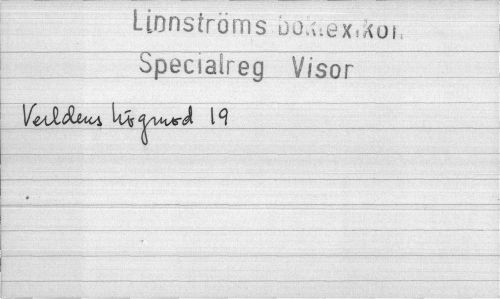 Linnströms boklexikon
Specialreg Visor
Verldens högmod 19